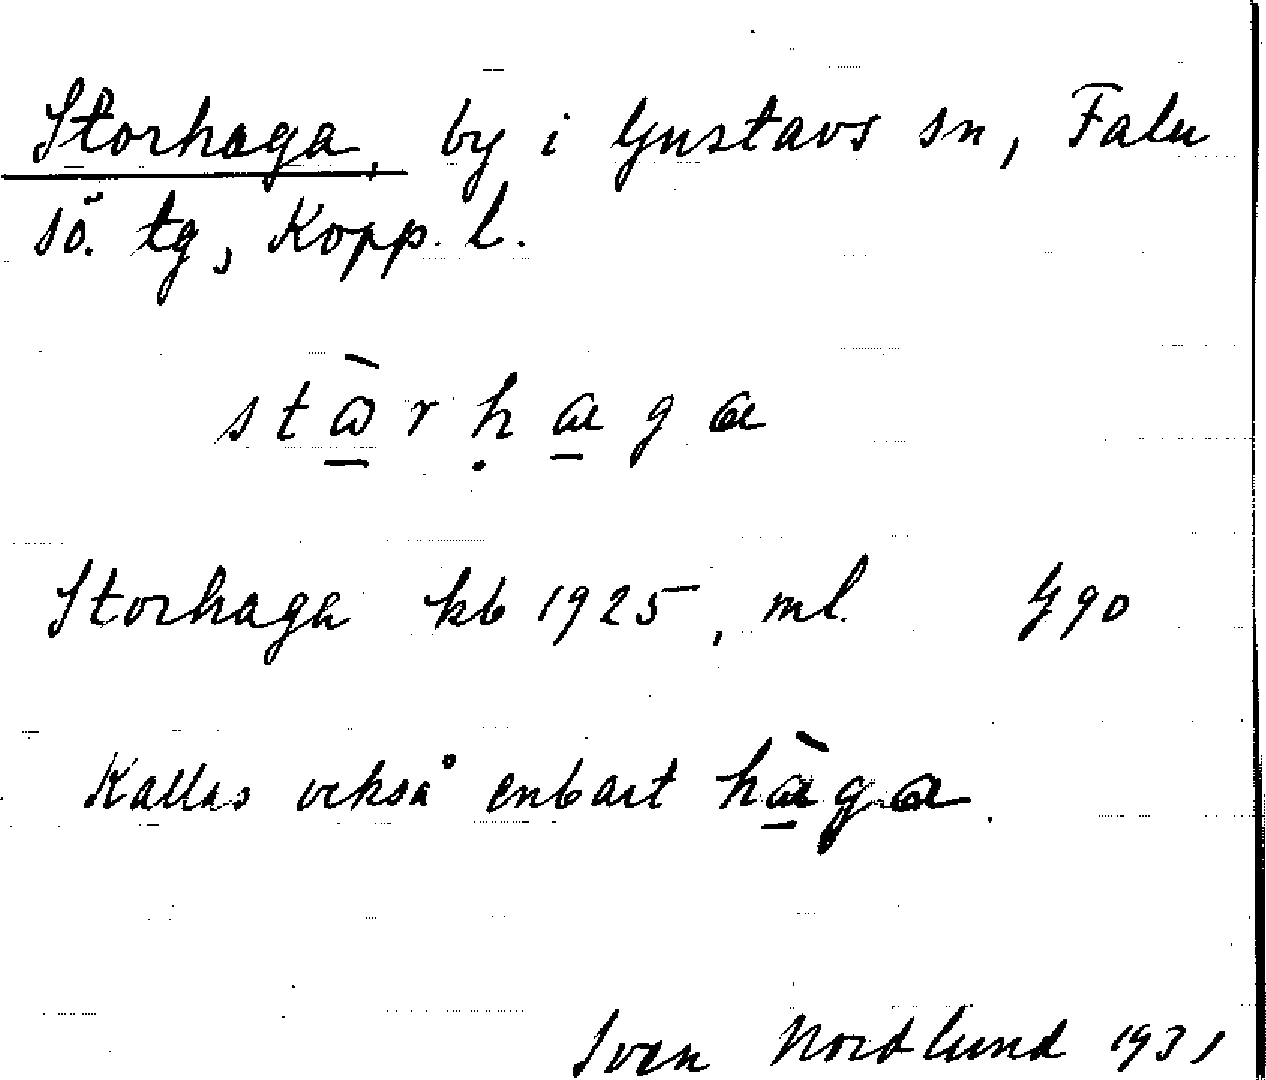 Storhaga, by i Gustavs sn, Falu
sö. tg, Kopp. l.
stὼ̲rḥa̲ga
Storhaga kb 1925, ml. G 90
Kallas också enbart hà̲ga.
Sven Nordlund 1931